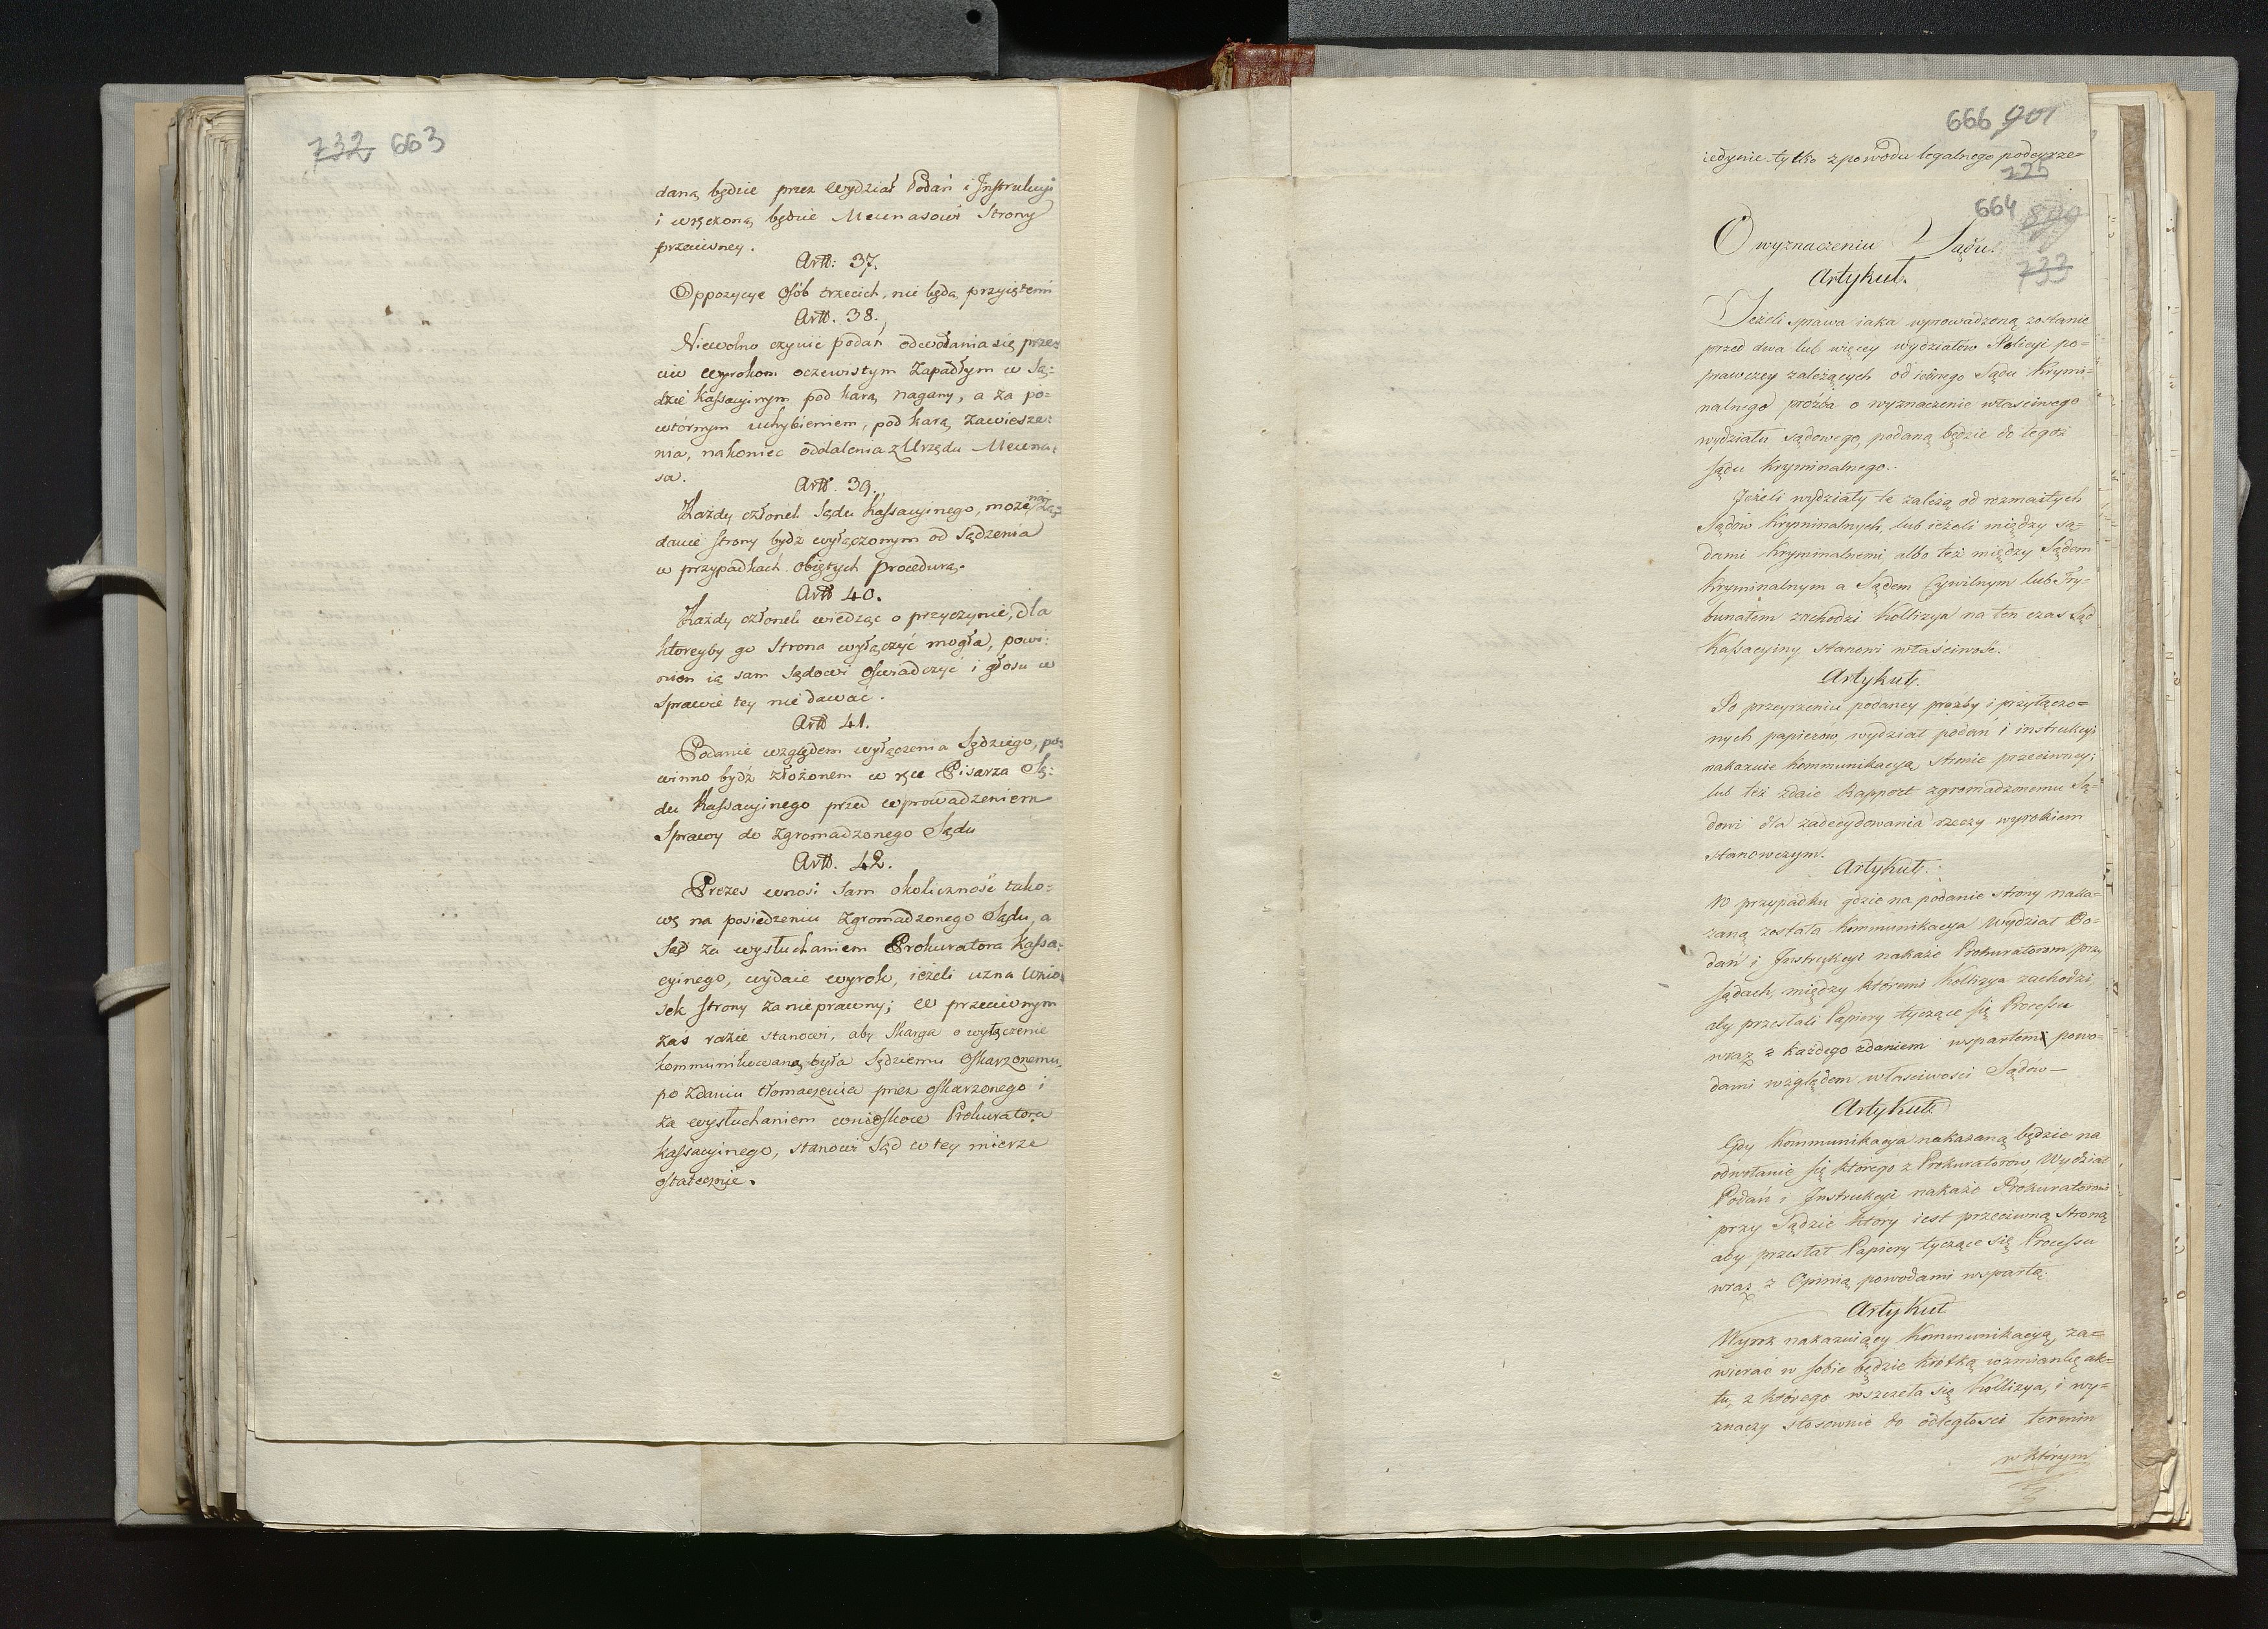 732 663
daną będzie przez Wydział Podań i Instrukcyi
i wręczoną będzie Mecenasowi Strony
przeciwney.
Artt: 37.
Oppozycye Osób trzecich, nie będą przyiętemi
Artt. 38.
Niewolno czynić podań odwołania się prze=
ciw wyrokom oczewistym zapadłym w Są=
dzie Kassacyinym pod karą nagany, a za po=
wtórnym uchybieniem, pod karą zawiesze=
nia, nakoniec oddalenia z Urzędu Mecena=
sa.
Artt. 39.
Każdy członek Sądu Kassacyinego, może na żą=
danie strony bydź wyłączonym od Sądzenia
w przypadkach obiętych Procedurą.
Artt 40.
Każdy członek wiedząc o przyczynie, dla
ktoreyby go Strona wyłączyć mogła, powi=
nien ią sam Sądowi Oswiadczyć i głosu w
sprawie tey nie dawać.
Artt 41.
Podanie względem wyłączenia Sędziego, po=
winno bydź złożonem w ręce Pisarza Są=
du Kassacyinego przed wprowadzeniem
Sprawy do Zgromadzonego Sądu
Artt. 42.
Prezes wnosi sam okoliczność tako=
wą na posiedzeniu Zgromadzonego Sądu, a
Sąd za wysłuchaniem Prokuratora Kassa=
cyinego, wydaie wyrok, ieżeli uzna wnio=
sek strony za nieprawny; w przeciwnym
zaś razie stanowi, aby skarga o wyłączenie
kommunikowaną była Sędziemu Oskarżonemu,
po zdaniu tłomaczenia przez oskarzonego i
za wysłuchaniem wniosków Prokuratora
Kassacyinego, stanowi Sąd w tey mierze
ostatecznie.
666 901
iedynie tylko z powodu legalnego podeyrze=
725
664 899
O wyznaczeniu Sądu.
733
Artykuł.
Jeżeli sprawa iaka wprowadzoną zostanie
przed dwa lub więcey wydziałów Policyi po=
prawczey zależących od iednego Sądu Krymi=
nalnego proźba o wyznaczenie właściwego
wydziału sądowego, podaną będzie do tegoż
sądu Kryminalnego.
Jeżeli wydziały te zależą od rozmaitych
Sądów Kryminalnych, lub ieżeli między są=
dami Kryminalnemi albo też między Sądem
Kryminalnym a Sądem Cywilnym lub Try=
bunałem zachodzi Kollizya na ten czas Sąd
Kassacyiny stanowi właściwość.
Artykuł.
Po przeyrzeniu podaney prozby i przyłączo=
nych papierow, wydział podań i instrukcyi
nakazuie kommunikacyą stronie przeciwney;
lub też zdaie Rapport zgromadzonemu Są=
dowi dla zadecydowania rzeczy wyrokiem
stanowczym.
Artykuł.
W przypadku gdzie na podanie strony naka=
zaną została kommunikacya Wydział Po=
dań i Instrukcyi nakaże Prokuratorom przy
sądach, między któremi kollizya zachodzi,
aby przesłali Papiery tyczące się Processu
wraz z każdego zdaniem wspartem powo=
dami względem własciwosci Sądów —
Artykuł
Gdy Kommunikacya nakazaną będzie na
odwołanie się którego z Prokuratorow, Wydział
Podań i Instrukcyi nakaże Prokuratorowi
przy Sądzie który iest przeciwną stroną
aby przesłał Papiery tyczące się Processu
wraz z Opinią powodami wspartą.
Artykuł
Wyrok nakazuiący Kommunikacyą, za=
wierac w sobie będzie krótką wzmiankę ak=
tu, z którego wszczęła się Kollizya, i wy=
znaczy stosownie do odległosci termin
w którym